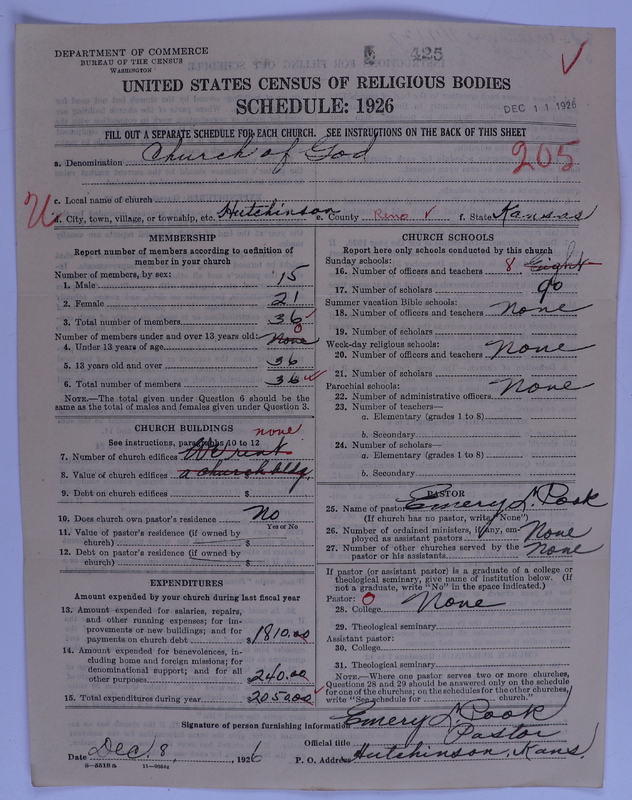 DEPARTMENT OF COMMERCE
BUREAU OF THE CENSUS
WASHINGTON
425
UNITED STATES CENSUS OF RELIGIOUS BODIES
SCHEDULE: 1926
DEC 11 1926
FILL OUT A SEPARATE SCHEDULE FOR EACH CHURCH. SEE INSTRUCTIONS ON THE BACK OF THIS SHEET
a. Denomination Church of God
205
c. Local name of church
d. City, town, village, or township, etc. Hutchinson e. County Reno f. State Kansas
MEMBERSHIP
Report number of members according to definition of
member in your church
Number of members, by sex:
1. Male 15
2. Female 21
3. Total number of members 36
Number of members under and over 13 years old:
4. Under 13 years of age None 0
5. 13 years old and over 36
6. Total number of members 36
NOTE.—The total given under Question 6 should be
same as the total of males and females given under Question 3.
CHURCH BUILDINGS
See instructions, paragraphs 10 to 12
none
7. Number of church edifices We rent
8. Value of church edifices a church bldg.
9. Debt on church edifices $
10. Does church own pastor's residence No
Yes or No
11. Value of pastor's residence (if owned by
church) $
12. Debt on pastor's residence (if owned by
church) $
EXPENDITURES
Amount expended by your church during last fiscal year
13. Amount expended for salaries, repairs,
and other running expenses; for im-
provements or new buildings; and for
payments on church debt $1810.00
14. Amount expended for benevolences, in-
cluding home and foreign missions; for
denominational support; and for all
other purposes $240.00
15. Total expenditures during year $2050.00
CHURCH SCHOOLS
Report here only schools conducted by this church
Sunday schools:
16. Number of officers and teachers 8 Eight
17. Number of scholars 90
Summer vacation Bible schools:
18. Number of officers and teachers none
19. Number of scholars
Week-day religious schools:
20. Number of officers and teachers None
21. Number of scholars
Parochial schools:
22. Number of administrative officers None
23. Number of teachers—
a. Elementary (grades 1 to 8)
b. Secondary
24. Number of scholars—
a. Elementary (grades 1 to 8)
b. Secondary
PASTOR
25. Name of pastor Emery L. Pook
(If church has no pastor, write "None")
26. Number of ordained ministers, if any, em-
ployed as assistant pastors None
27. Number of other churches served by the
pastor or his assistants None
If pastor (or assistant pastor) is a graduate of a college or
theological seminary, give name of institution below. (If
not a graduate, write "No" in the space indicated.)
Pastor: O
28. College None
29. Theological seminary
Assistant pastor:
30. College
31. Theological seminary
NOTE.—Where one pastor serves two or more churches,
Questions 28 and 29 should be answered only on the schedule
for one of the churches; on the schedules for the other churches,
write "See schedule for church."
Signature of person furnishing information Emery L. Pook
Official title Pastor
Date Dec. 8, 1926 P. O. Address Hutchinson, Kans.